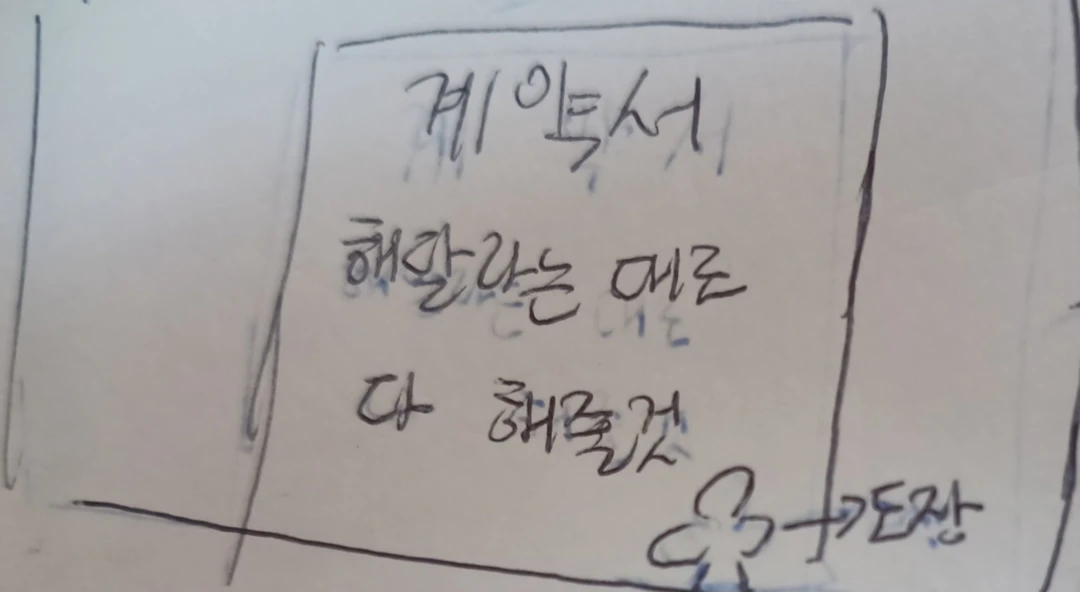 계약서
해달라는 대로
다 해줄것
→도장